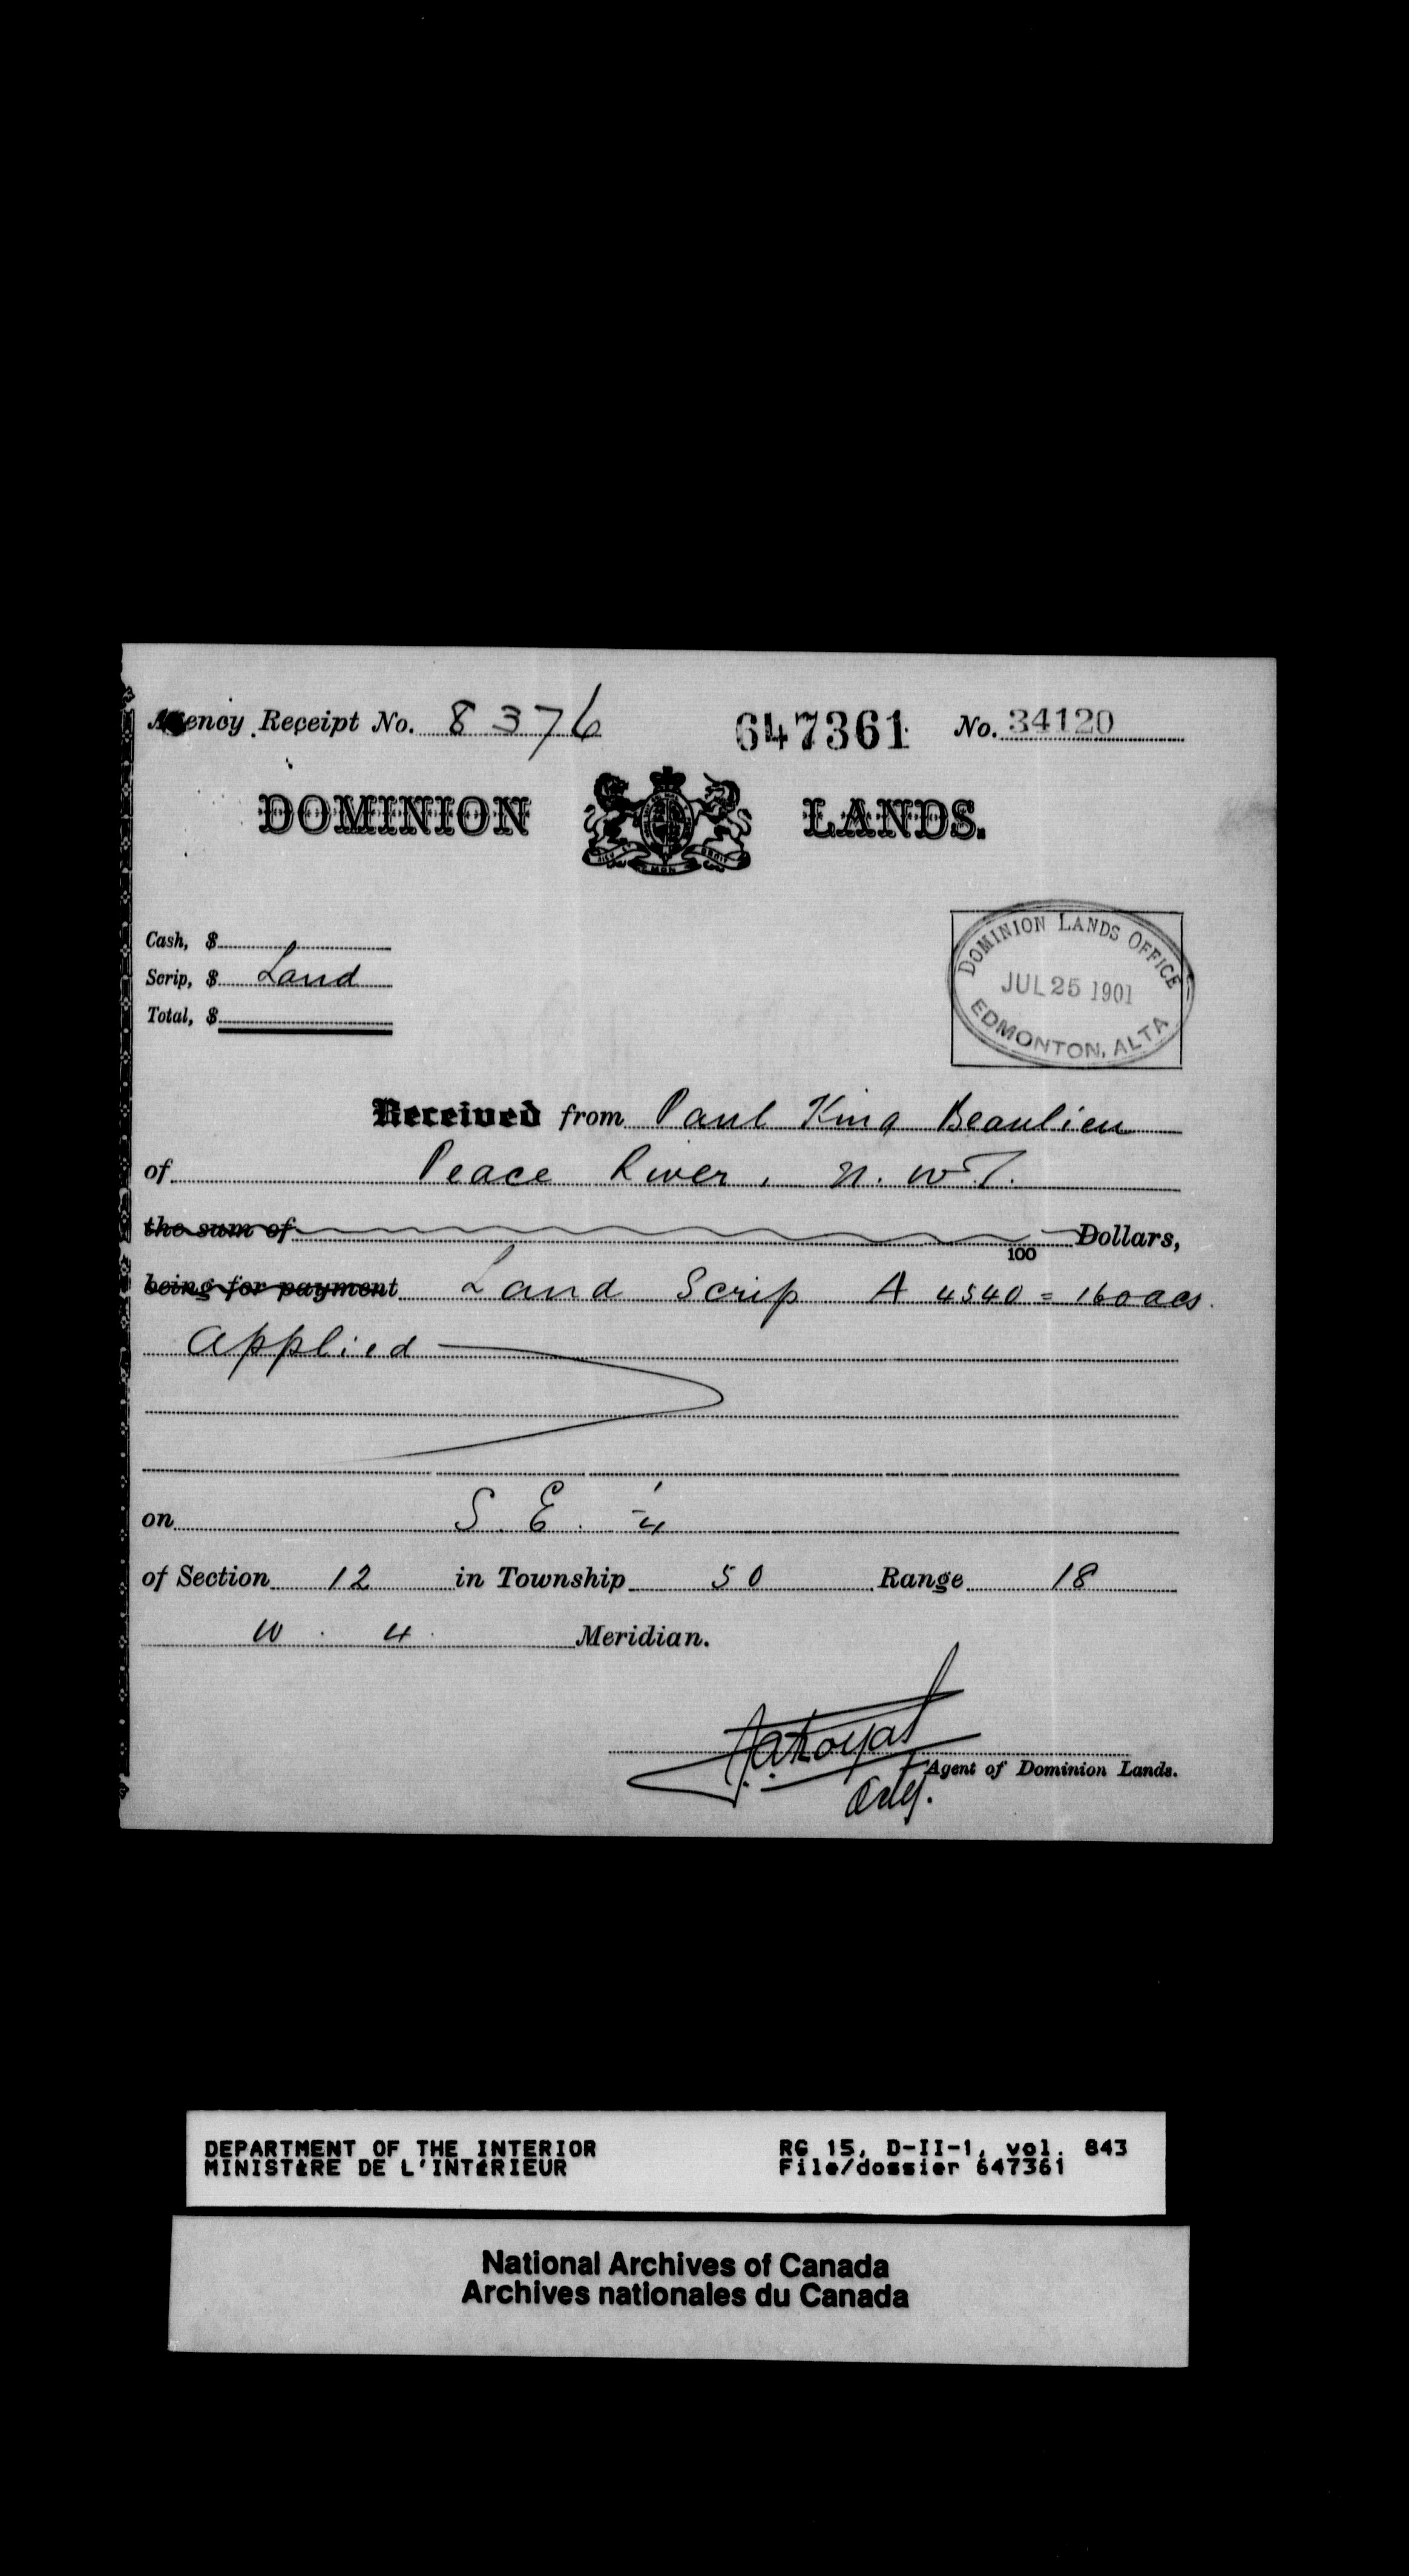 Agency Receipt No. 8376 647361 No. 34120
DOMINION LANDS.
Cash, $
Scrip, $ Land
Total, $
DOMINION LANDS OFFICE
JUL 25 1901
EDMONTON, ALTA
Received from Paul King Beaulieu
of Peace River, N. W. T.
the sum of 100 Dollars,
being for payment Land Scrip A 4540 = 160 acs.
applied
on S. E. 1/4
of Section 12 in Township 50 Range 18
W. 4. Meridian.
Agent of Dominion Lands.
DEPARTMENT OF THE INTERIOR RG 15, D-II-1, vol. 843
MINISTÈRE DE L'INTÉRIEUR File/dossier 647361
National Archives of Canada
Archives nationales du Canada